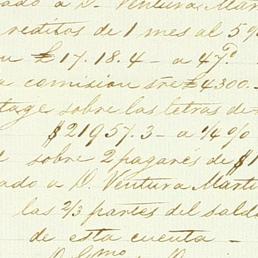 ado a D. Ventura Mar
creditos de 1 mes al 5
un £17.18.4 - a 47⁠ᵈ
a comision sre £4300.-
tage sobre las letras de
$21957.3 - a ¼ %
sobre 2 pagarés de $1
ado a D. Ventura Marti
las ⅔ partes del sald
de esta cuenta -